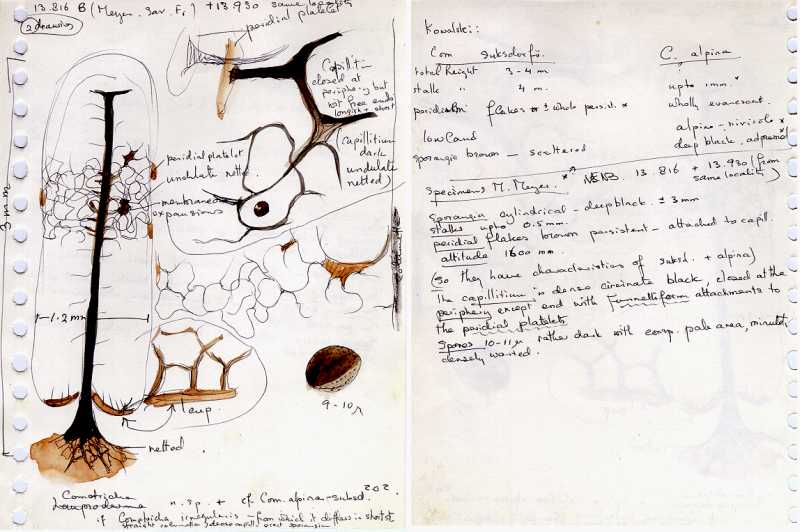 13.816 B (Meyer. Sav. Fr.) + 13.930 same locality
2 drawings
peridial platelet
Capilliti-
closed at
periphery but
not free ends
longish + short
(capillitium
dark
undulate
netted)
peridial platelet
undulate netted
membraneous
expansions
3 mm
1.2 mm
1 cup
netted
9-10 µ
202.
Comatricha
Lamproderma
n. sp. + cf Com. alpina-suksd.
if Comatricha irregularis - from which it differs in short st.
Kowalski:
Com suksdorfii
C. alpina
total height 3-4 m
stalk " 4 m.
upto 1mm.
peridium flakes or ± whole persist. *
wholly evanescent.
lowland
alpine-nivicole *
sporangia brown - scattered
deep black, adpressed
Specimens M. Meyer. NB. 13.816 + 13.930 (from
same locality)
Sporangia cylindrical - deep black. ± 3mm
stalks upto 0.5mm.
peridial flakes brown persistent - attached to capill.
altitude 1600 mm.
(so they have characteristics of suksd. + alpina)
The capillitium in dense circinate black closed at the
periphery except end with funnelliform attachments to
the peridial platelets
Spores 10-11µ rather dark with consp. pale area, minutely
densely warted.